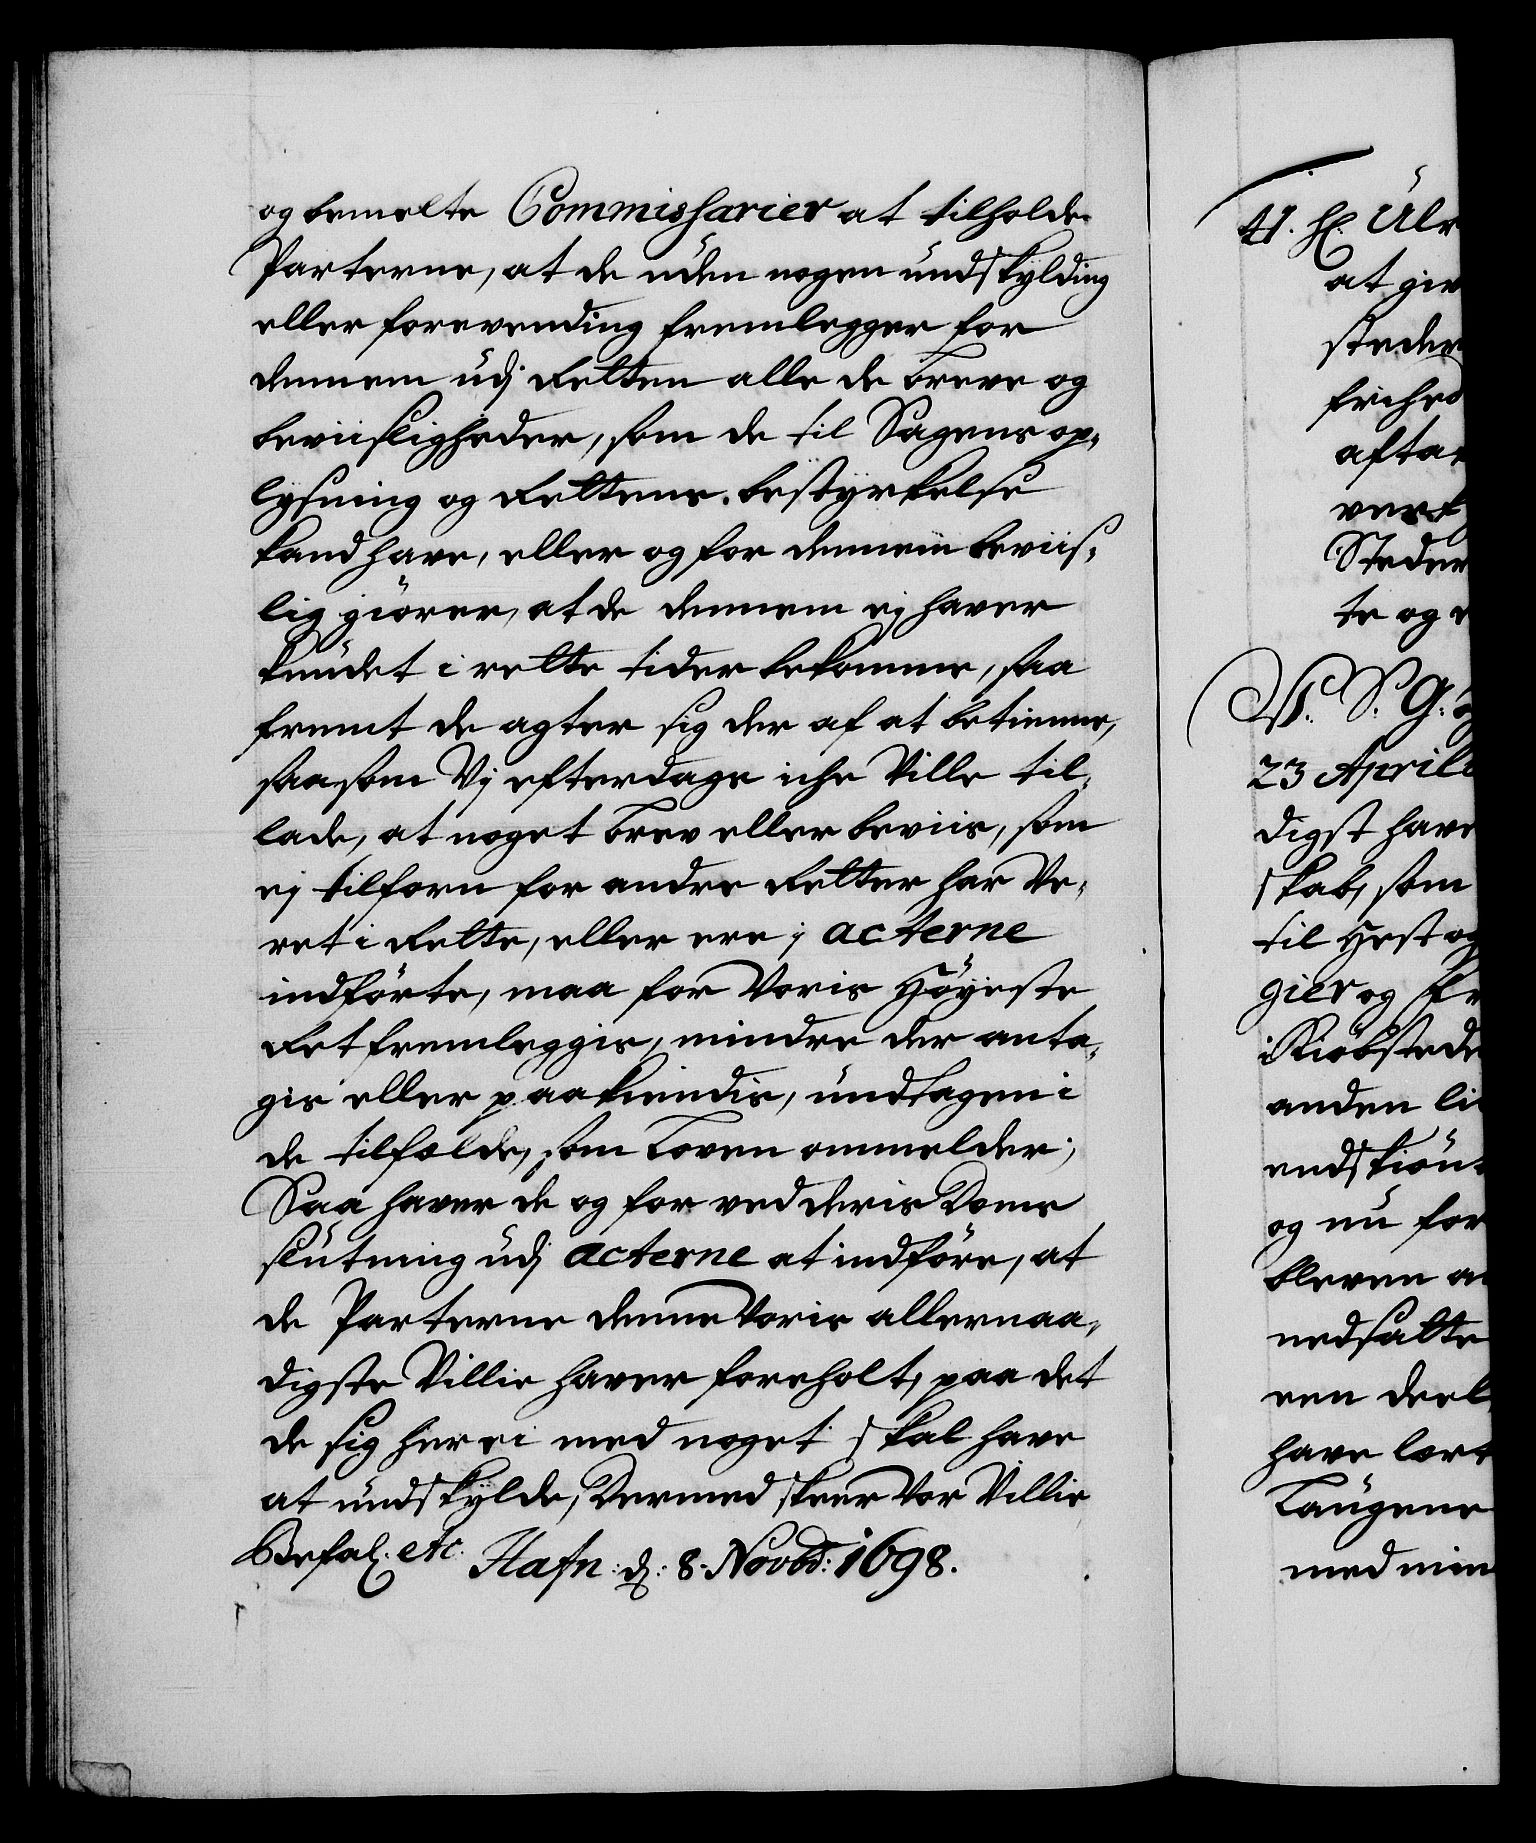 og bemelte Commissarier at tilholde
Parterne, at de uden nogen undskylding
eller forevending fremlegger for
dennem udj Retten alle de breve og
beviisligheder, som de til Sagens op,
lysning og Rettens bestyrkelse
kand have, eller og for dennem beviis,
lig giører, at de dennem ej haver
kundet i rette tider bekomme, saa
fremt de agter sig der af at betienne,
saasom Vj efterdags iche Ville til,
lade, at noget brev eller beviis, som
ej tilforn for andre Retter har Ve,
ret i Rette, eller ere j acterne
indførte, maa for Voris Höyeste
Ret fremleggis, mindre der anta,
gis eller paakiendis, undtagen i
de tilfælde, som Loven ommelder;
Saa haver de og for ved deris Doms
slutning udj acterne at indføre, at
de Parterne denne Voris allernaa,
digste Villie haver foreholt, paa det
de sig herei med noget skal have
at undskylde, Dermed skeer Vor Villie
Befal. etc. Hafn: d: 8. Novbr: 1698.
41. H. Ulr
at giv
steder
frihed
afta
vert
Steder
te og
V. S. G.
23 April
digst have
skab, som
til Hest og
gier og
i Kiøbstede
anden li
endskiøn
og nu for
bleven a
nedsatte
een deel
have lært
Laugene
med min